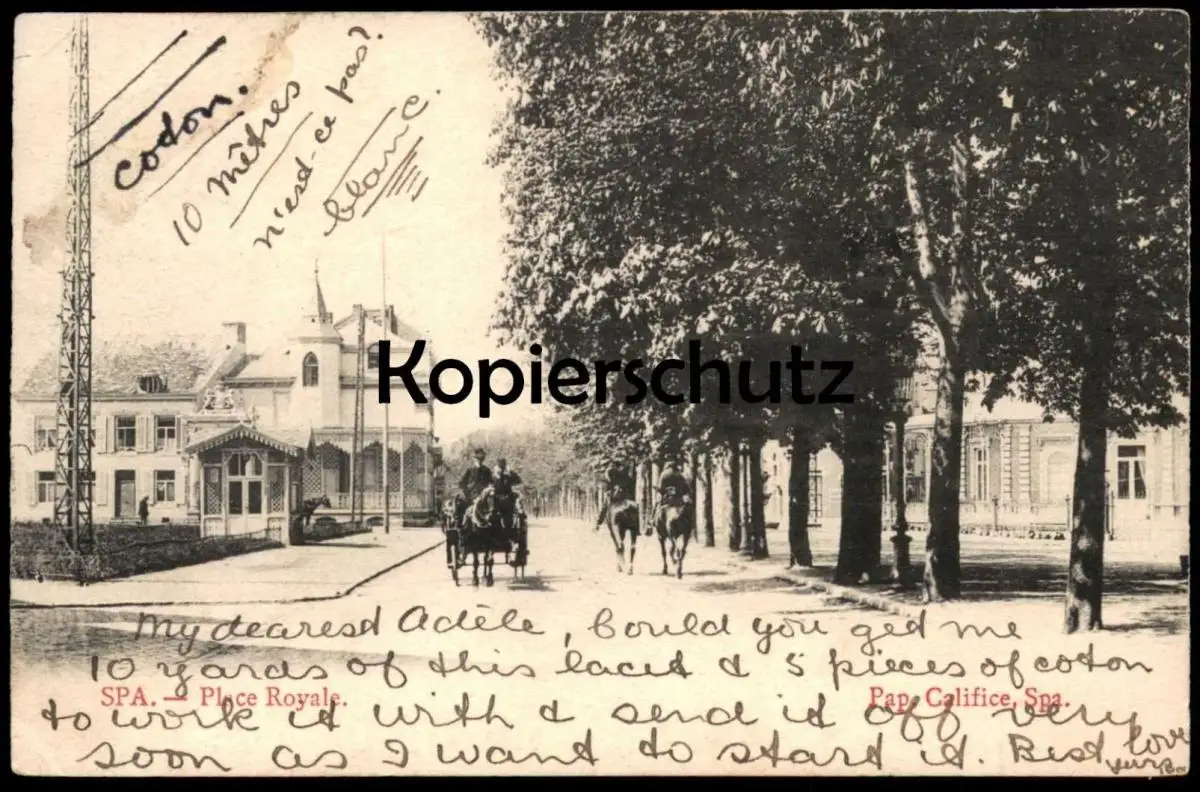 coton.
10 mêtres
n'est-ce pas?
blanc.
Kopierschutz
My dearest Adèle, Could you get me
10 yards of this lacet & 5 pieces of coton
SPA. — Place Royale.
Pap. Califice, Spa.
to work it with & send it off very
soon as I want to start it. Best love